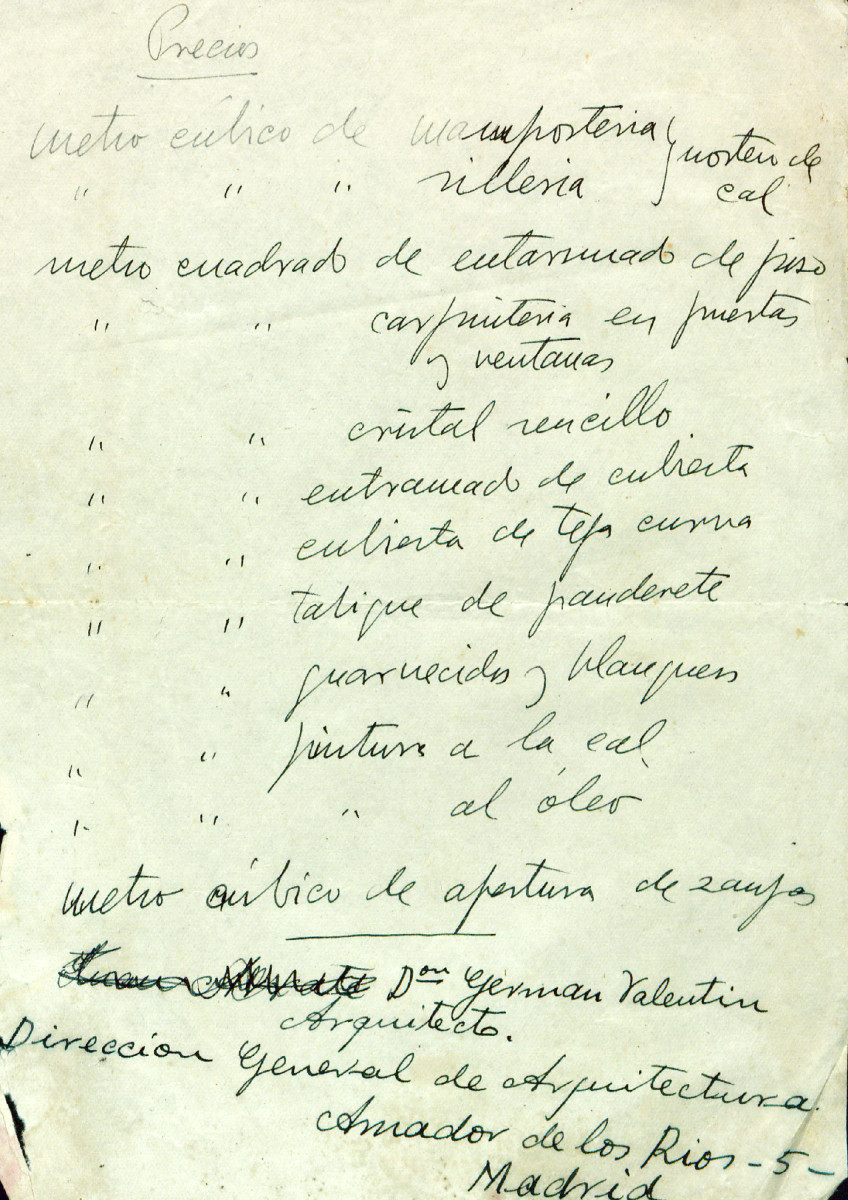 Precios
metro cúbico de mampostería } mortero de
" " " sillería } cal
metro cuadrado de entarimado de piso
" " carpinteria en puertas
y ventanas
" " cristal sencillo
" " entramado de cubierta
" " cubierta de teja curva
" " tabique de panderete
" " guarnecidos y blanqueos
" " pintura a la cal
" " " al óleo
metro cúbico de apertura de zanjas
Don German Valentin
Arquitecto.
Direccion General de Arquitectura.
Amador de los Rios - 5 -
Madrid